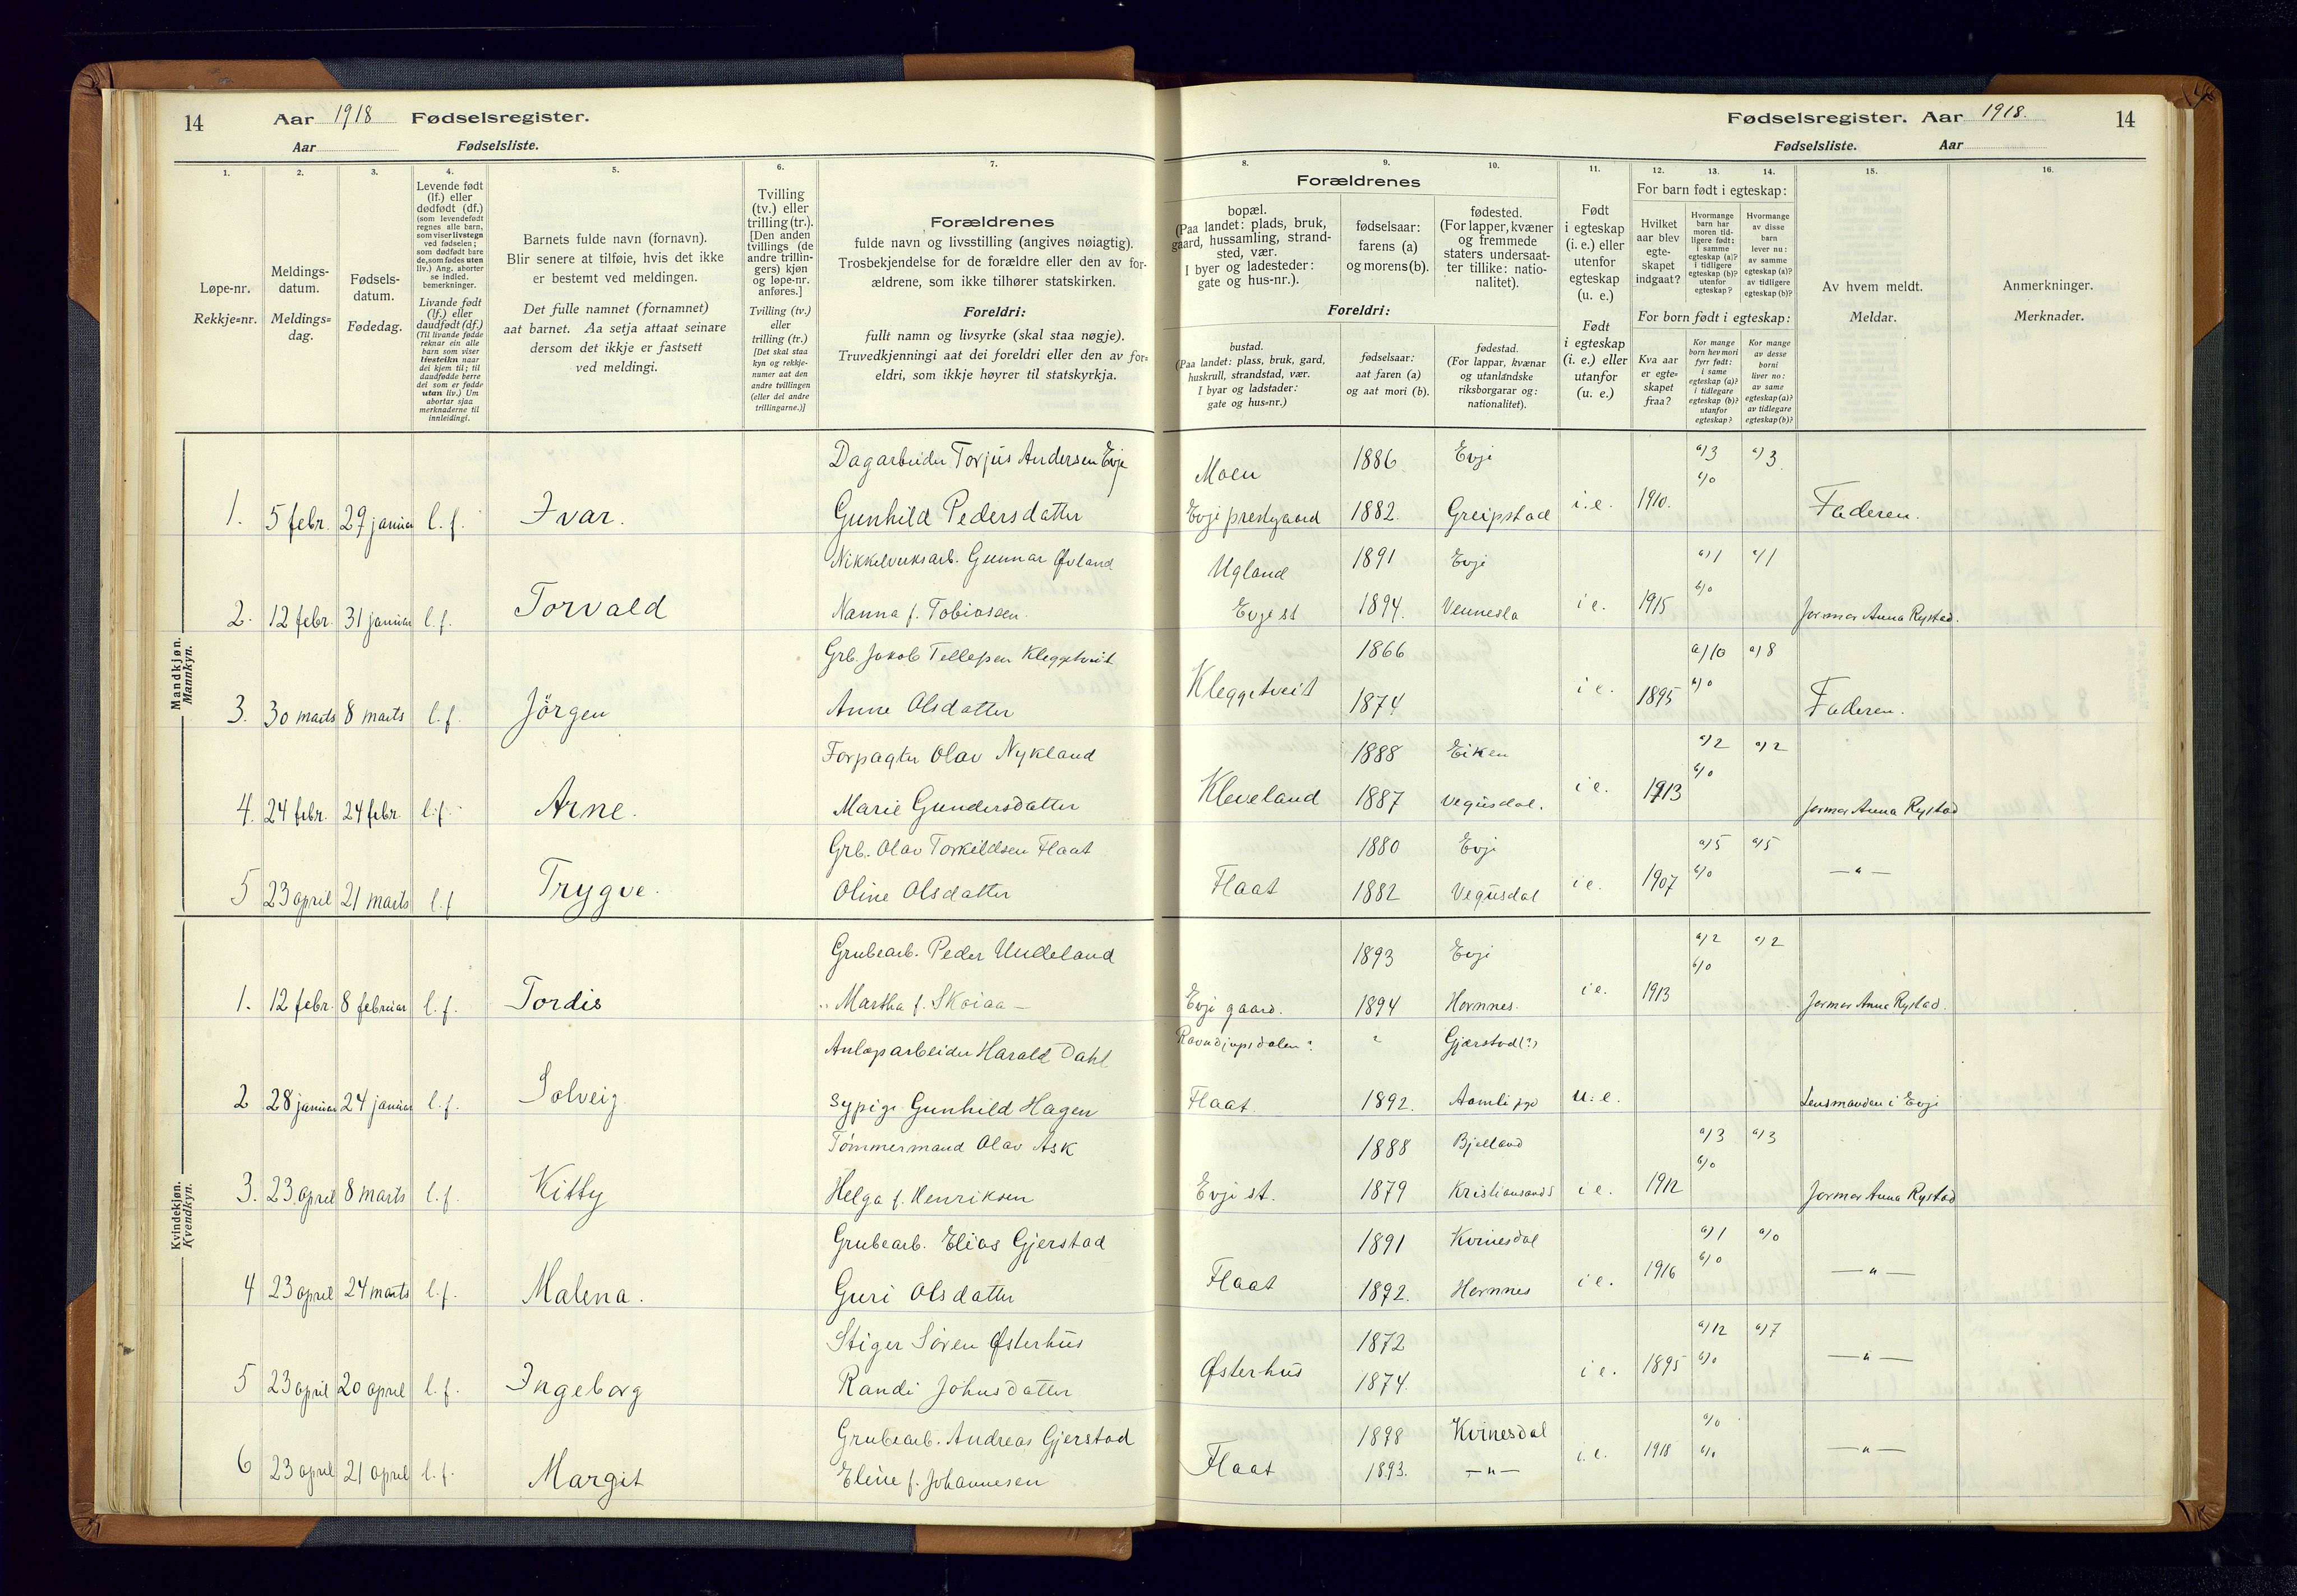 14
Aar 1918 Fødselsregister.
Aar Fødselsliste.
Fødselsregister. Aar 1918.
14
Fødselsliste. Aar
1.
2.
3.
4.
5.
6.
7.
Løpe-nr.
Rekkje=nr.
Meldings-
datum.
Meldings=
dag.
Fødsels-
datum.
Fødedag.
Levende født
(lf.) eller
dødfødt (df.)
(som levendefødt
regnes alle barn,
som viser livstegn
ved fødselen;
som dødfødt bare
de, som fødes uten
liv.) Ang. aborter
se indled.
bemerkninger.
Livande født
(lf.) eller
daudfødt (df.)
(Til livande fødde
reknar ein alle
barn som viser
livsteikn naar
dei kjem til; til
daudfødde berre
dei som er fødde
utan liv.) Um
abortar sjaa
merknaderne til
innleidingi.
Barnets fulde navn (fornavn).
Blir senere at tilføie, hvis det ikke
er bestemt ved meldingen.
Det fulle namnet (fornamnet)
aat barnet. Aa setja attaat seinare
dersom det ikkje er fastsett
ved meldingi.
Tvilling
(tv.) eller
trilling (tr.).
[Den anden
tvillings (de
andre trillin-
gers) kjøn
og løpe-nr.
anføres.]
Tvilling (tv.)
eller
trilling (tr.)
[Det skal staa
kyn og rekkje-
numer aat den
andre tvillingen
(eller dei andre
trillingarne.)]
Forældrenes
fulde navn og livsstilling (angives nøiagtig).
Trosbekjendelse for de forældre eller den av for-
ældrene, som ikke tilhører statskirken.
Foreldri:
fullt namn og livsyrke (skal staa nøgje).
Truvedkjenningi aat dei foreldri eller den av for=
eldri, som ikkje høyrer til statskyrkja.
8.
9.
10.
11.
12.
13.
14.
15.
16.
Forældrenes
bopæl.
(Paa landet: plads, bruk,
gaard, hussamling, strand-
sted, vær.
I byer og ladesteder:
gate og hus-nr.).
fødselsaar:
farens (a)
og morens (b).
fødested.
(For lapper, kvæner
og fremmede
staters undersaat-
ter tillike: natio-
nalitet).
Foreldri:
bustad.
(Paa landet: plass, bruk, gard,
huskrull, strandstad, vær.
I byar og ladstader:
gate og hus=nr.)
fødselsaar:
aat faren (a)
og aat mori (b).
fødestad.
(For lappar, kvænar
og utanlandske
riksborgarar og:
nationalitet).
Født
i egteskap
(i. e.) eller
utenfor
egteskap
(u. e.)
Født
i egteskap
(i. e.) eller
utanfor
(u. e.)
For barn født i egteskap:
Hvilket
aar blev
egte-
skapet
indgaat?
Hvormange
barn har
moren tid-
ligere født:
i samme
egteskap (a)?
i tidligere
egteskap (b)?
utenfor
egteskap?
Hvormange
av disse
barn
lever nu:
av samme
egteskap (a)?
av tidligere
egteskap (b)?
For born født i egteskap:
Kva aar
er egte=
skapet
fraa?
Kor mange
born hev mori
fyrr født:
i same
egteskap (a)?
i tidlegare
egteskap (b)?
utanfor
egteskap?
Kor mange
av desse
borni
liver no:
av same
egteskap (a)?
av tidlegare
egteskap (b)?
Av hvem meldt.
Meldar.
Anmerkninger.
Merknader.
Mandkjøn.
Mannkyn.
Dagarbeider Torjus Andersen Evje Moen 1886 Evji a) 3 a) 3
b) 0
1. 5 febr. 29 januar l. f. Ivar. Gunhild Pedersdatter Evji prestgaard 1882. Greipstad i. e. 1910. Faderen.
Nikkelverksarb. Gunnar Øvland Ugland 1891 Evji a) 1 a) 1
b) 0
2. 12 febr. 31 januar l. f. Torvald Nanna f. Tobiassen. Evje st 1894. Vennesla i e. 1915 Jormor Anna Rystad.
Grb. Jakob Tellefsen Kleggetveit 1866 a) 10 a) 8
Kleggetveit b) 0
3. 30 marts 8 marts l. f. Jörgen Anne Olsdatter 1874 i e. 1895 Faderen.
Forpagter Olav Nykland 1888 Eiken a) 2 a) 2
b) 0
4. 24 febr. 24 febr. l. f. Arne. Marie Gundersdatter Kleveland 1887 Vegusdal. i e. 1913 Jormor Anna Rystad
Grb. Olav Torkildsen Flaat 1880 Evji a) 5 a) 5
b) 0
5 23 april 21 marts l. f Trygve. Oline Olsdatter Flaat 1882 Vegusdal i e. 1907 — " —
Kvindekjøn.
Kvendkyn.
Grubearb. Peder Uudeland 1893 Evji a) 2 a) 2
b) 0
1. 12 febr. 8 februar l. f. Tordis Martha f. Skoiaa — Evji gaard. 1894 Hornnes. i e. 1913 Jormor Anna Rystad.
Anlægsarbeider Harald Dahl Ravndjupsdalen? ? Gjærstad (?)
2 28 januar 24 januar l. f. Solveig. Sypige Gunhild Hagen Flaat. 1892. Aamli u. e. Lensmanden i Evji
Tømmermand Olav Ask 1888 Bjelland a) 3 a) 3
b) 0
3. 23 april 8 marts l. f. Kitty Helga f. Henriksen Evji st. 1879 Kristiansands i e. 1912 Jormor Anna Rystad
Grubearb. Elias Gjerstad 1891 Kvinesdal a) 1 a) 0
b) 0
4 23 april 24 marts l. f. Malena. Guri Olsdatter Flaat 1892. Hornnes i e. 1916 — " —
Stiger Sören Østerhus 1872 a) 12 a) 7
b) 0
5 23 april 20 april l. f. Ingeborg Randi Johnsdatter Østerhus 1874. i e. 1895 — " —
Grubearb. Andreas Gjerstad 1898 Kvinesdal a) 0
b) 0
6 23 april 21 april l. f. Margit Eline f. Johannesen Flaat 1893. — " — i. e. 1918 — " —